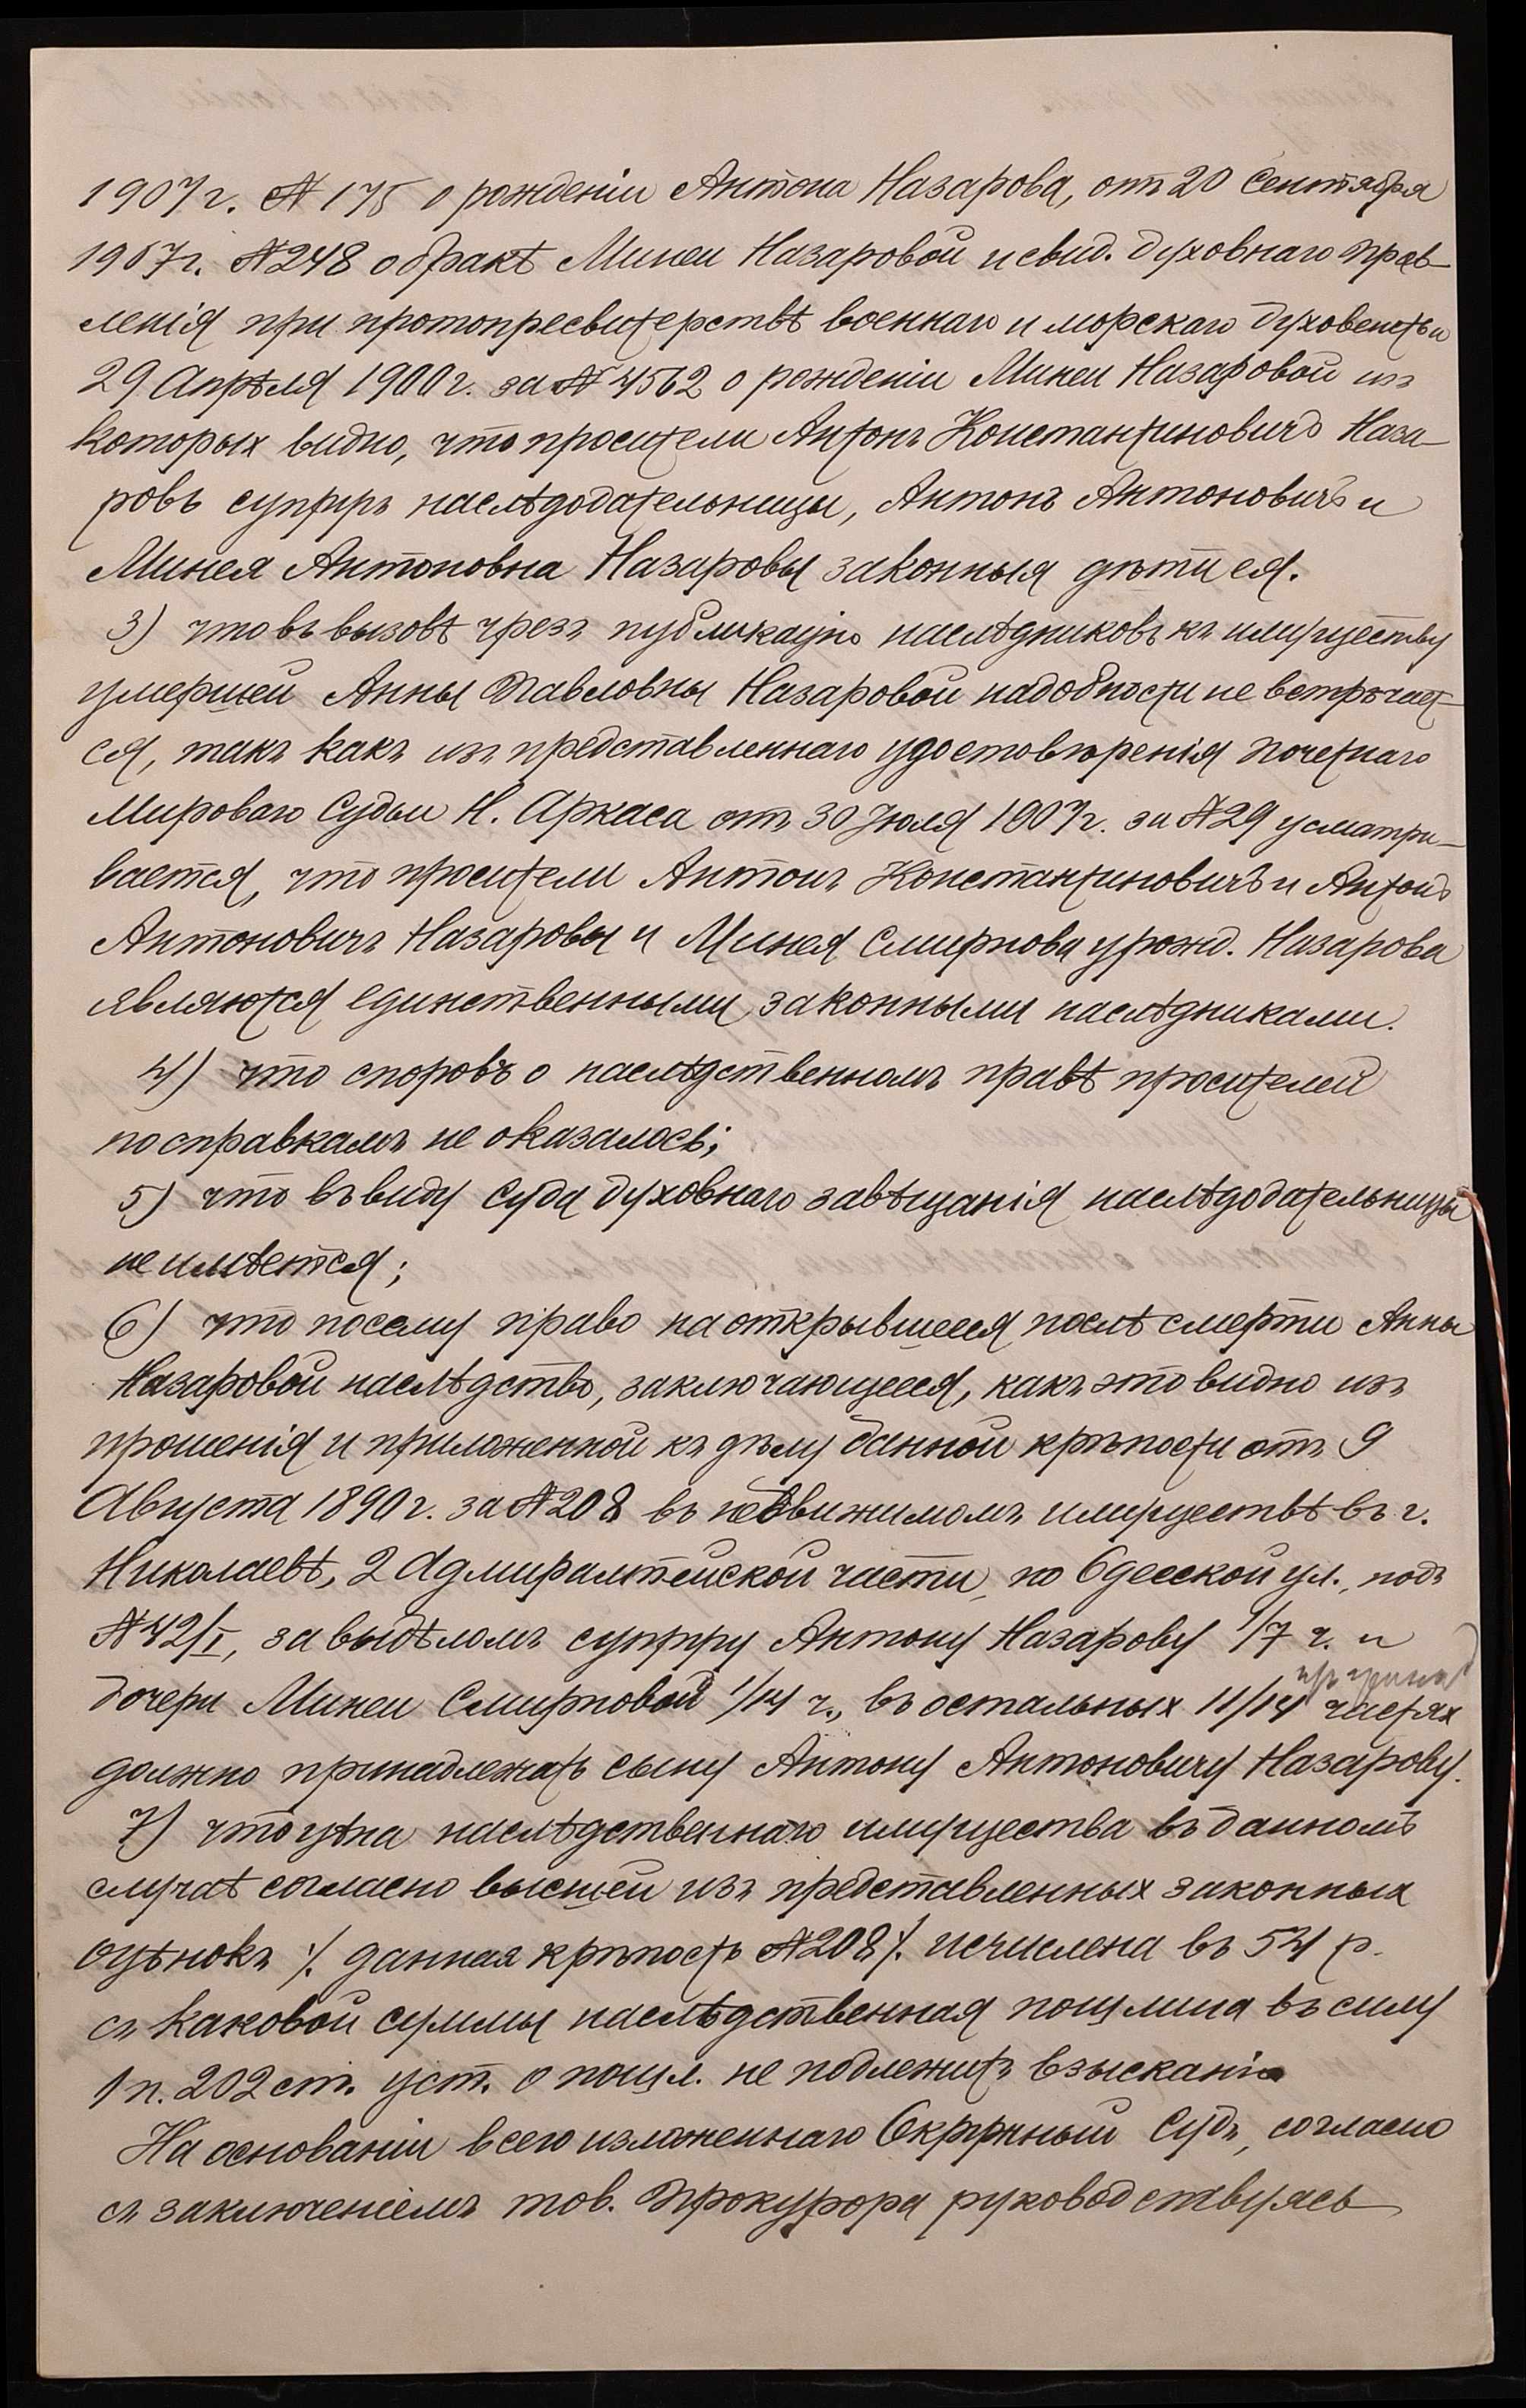 1907 г. № 175 о рожденіи Антона Назарова, отъ 20 Сентября
1907 г. № 248 о бракѣ Минеи Назаровой и свид. духовнаго прав-
ленія при протопресвитерствѣ военнаго и морскаго духовенства
29 Апрѣля 1900 г. за № 4562 о рожденіи Минеи Назаровой изъ
которыхъ видно, что просители Антонъ Константиновичъ Наза-
ровъ супругъ наслѣдодательницы, Антонъ Антоновичъ и
Минея Антоновна Назаровы законныя дѣти ея.
3) что въ вызовѣ чрезъ публикацію наслѣдниковъ къ имуществу
умершей Анны Павловны Назаровой надобности не встрѣчает-
ся, такъ какъ изъ представленнаго удостовѣренія Почетнаго
Мироваго Судьи Н. Аркаса отъ 30 Іюля 1907 г. за № 29 усматри-
вается, что просители Антонъ Константиновичъ и Антонъ
Антоновичъ Назаровы и Минея Смирнова урожд. Назарова
являются единственными законными наслѣдниками.
4) что споровъ о наслѣдственномъ правѣ просителей
по справкамъ не оказалось;
5) что въ виду суда духовнаго завѣщанія наслѣдодательницы
не имѣется;
6) что посему право на открывшееся послѣ смерти Анны
Назаровой наслѣдство, заключающееся, какъ это видно изъ
прошенія и приложенной къ дѣлу данной крѣпости отъ 9
Августа 1890 г. за № 208 въ недвижимомъ имуществѣ въ г.
Николаевѣ, 2 Адмиралтейской части, по Одесской ул., подъ
№ 42/I, за выдѣломъ супругу Антону Назарову 1/7 ч. и
дочери Минеи Смирновой 1/14 ч., въ остальныхъ 11/14 частях
должно принадлежать сыну Антону Антоновичу Назарову.
7) что цѣна наслѣдственнаго имущества въ данномъ
случаѣ согласно высшей изъ представленныхъ законныхъ
оцѣнокъ ·/. данная крѣпость № 208 ·/. исчислена въ 54 р.
съ каковой суммы наслѣдственная пошлина въ силу
1 п. 202 ст. уст. о пошл. не подлежитъ взысканію
На основаніи всего изложеннаго Окружный Судъ, согласно
съ заключеніемъ тов. Прокурора руководствуясь